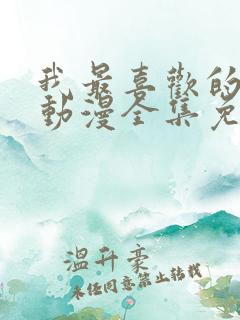 我最喜歡的
動漫全集免
溫升豪
未經同意禁止轉載